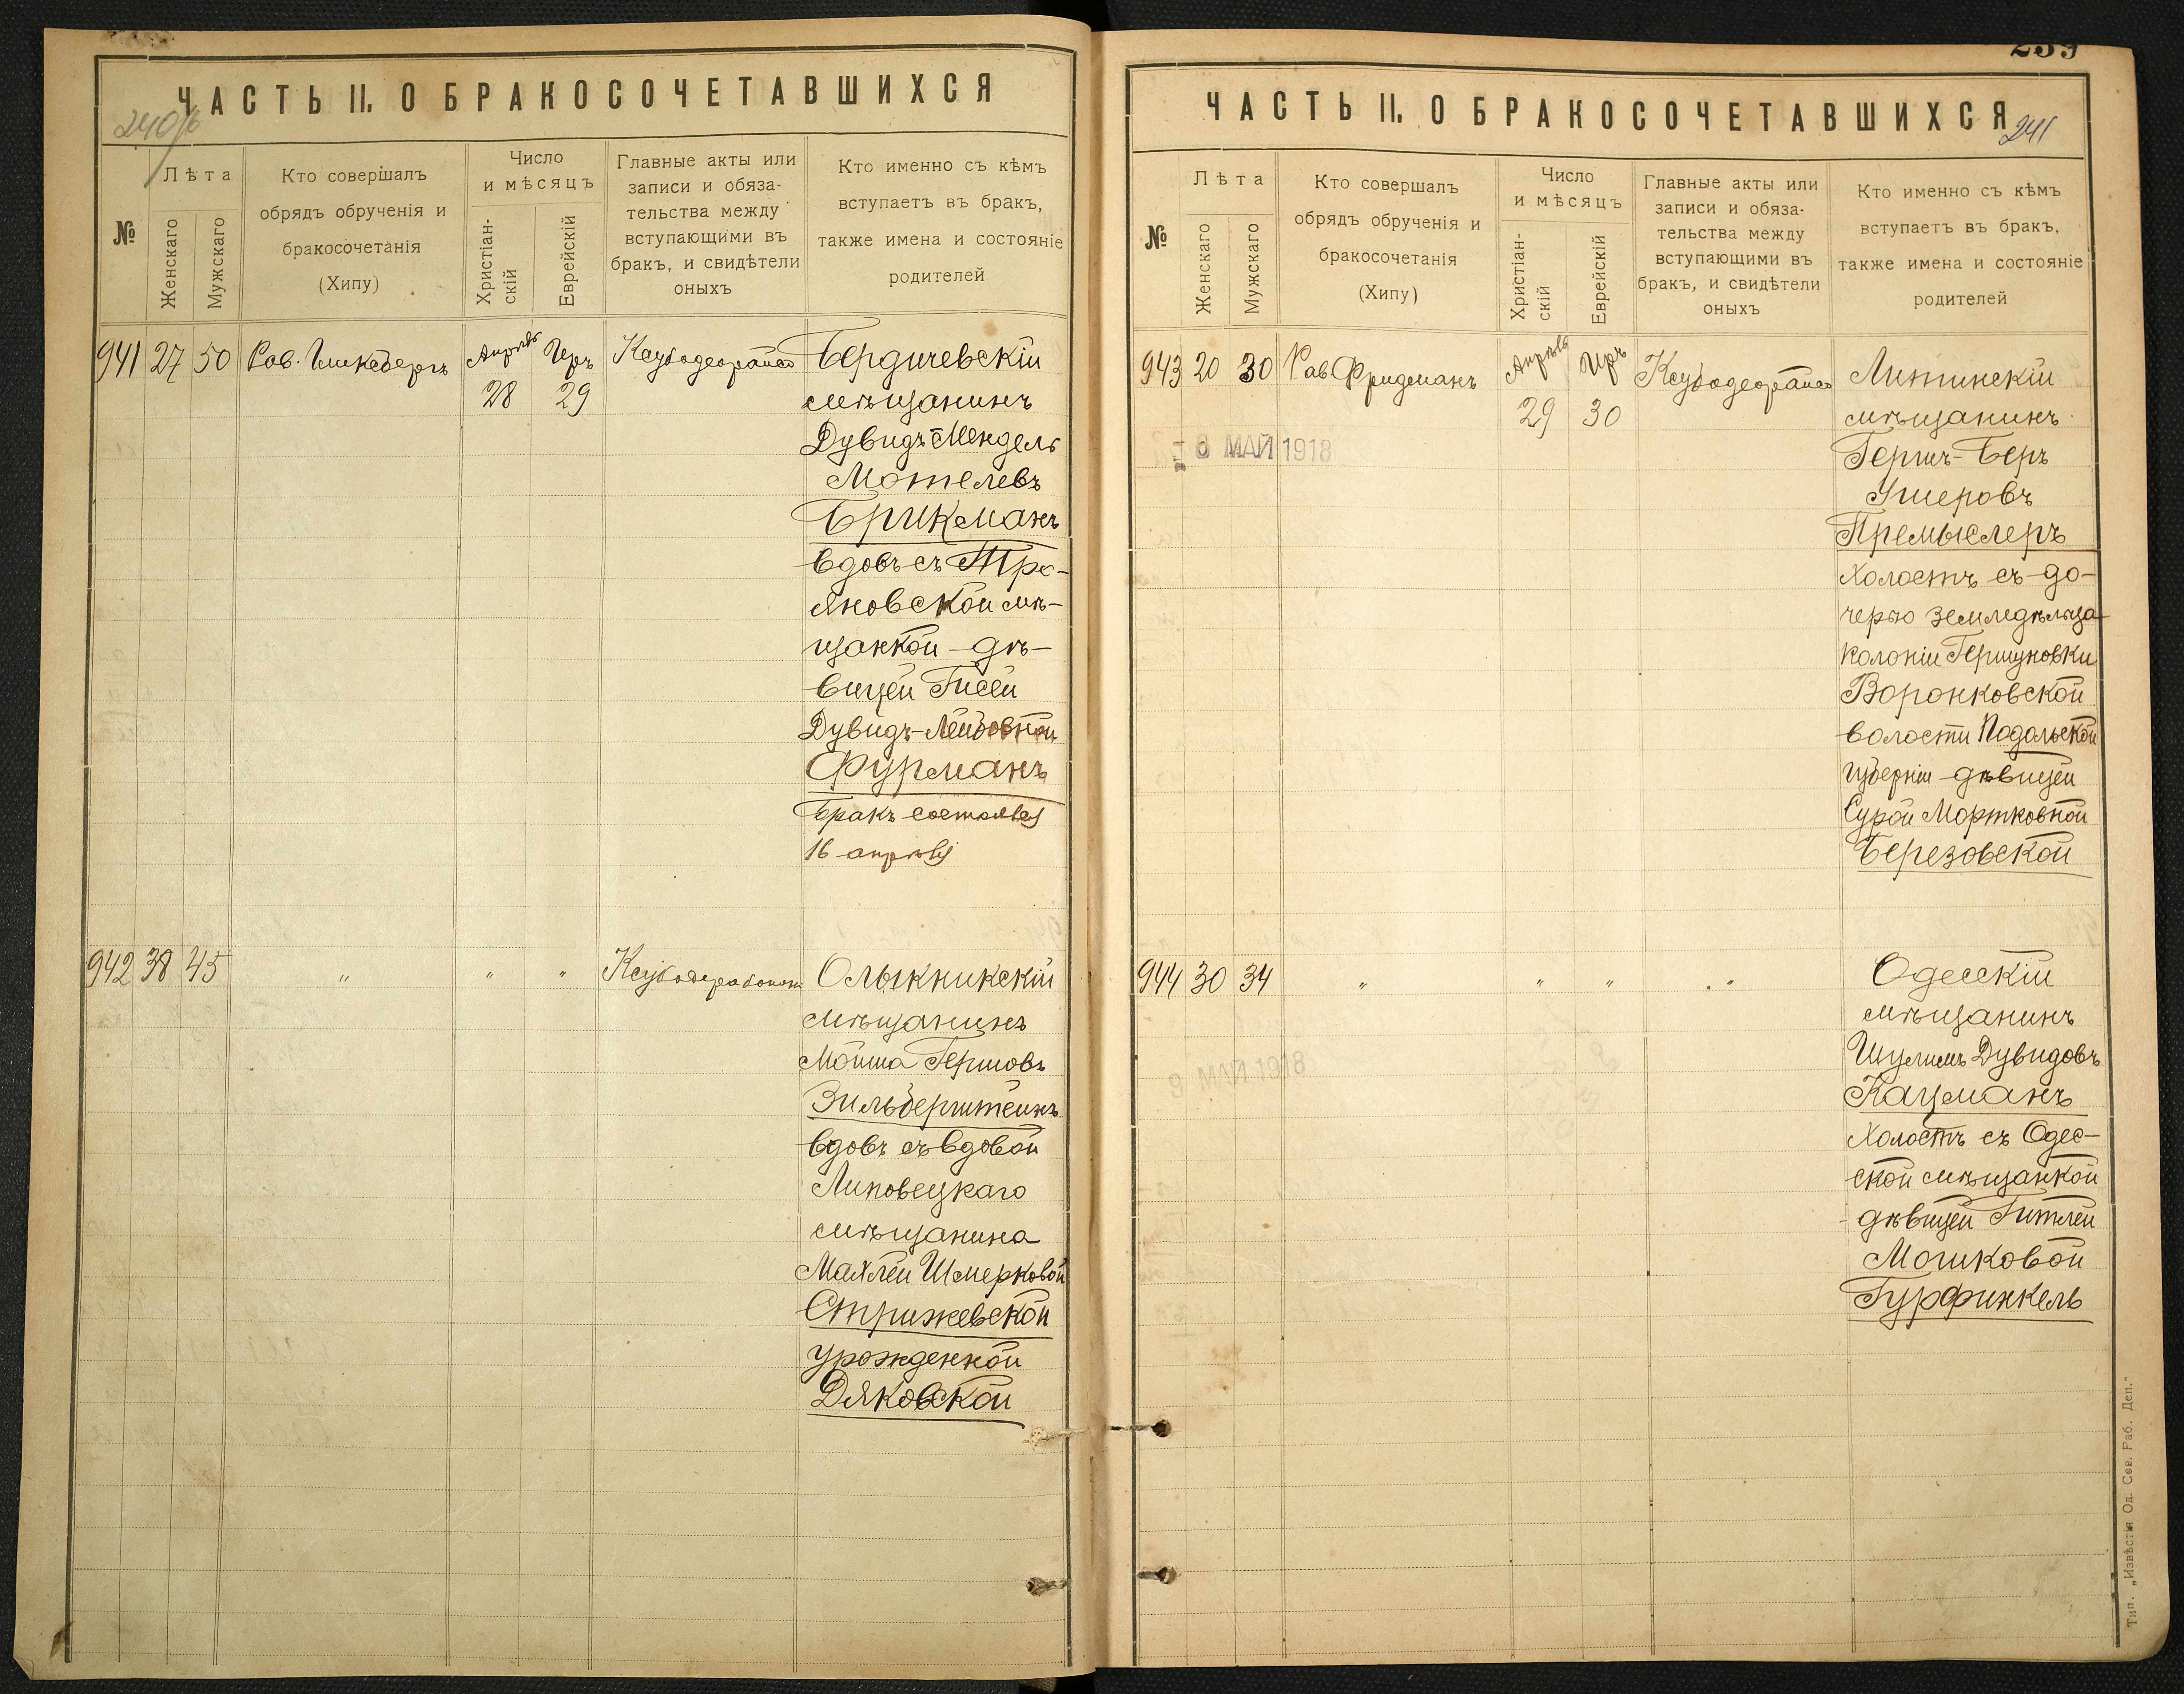 ЧАСТЬ II. О БРАКОСОЧЕТАВШИХСЯ
240/б
№
Лѣта
Женскаго
Мужскаго
Кто совершалъ
обрядъ обрученія и
бракосочетанія
(Хипу)
Число
и мѣсяцъ
Христіан-
скій
Еврейскій
Главные акты или
записи и обяза-
тельства между
вступающими въ
бракъ, и свидѣтели
оныхъ
Кто именно съ кѣмъ
вступаетъ въ бракъ,
также имена и состояніе
родителей
941 27 50 Рав. Апрѣль Иръ Бердичевскій
28 29 мѣщанинъ
Дувидъ-Мендель
Мотелевъ
Брикманъ
вдовъ съ Тро-
яновской мѣ-
щанкой-дѣ-
вицей Гисей
Дувидъ-Лейбовной
Фурманъ
Бракъ состоялся
16 апрѣля
942 38 45 " " " Олькникскій
мѣщанинъ
Мойша Гершовъ
Зильберштейнъ
вдовъ съ вдовой
Липовецкаго
мѣщанина
Махлей Шмерковой
Стрижевской
урожденной
Дяковской
239
ЧАСТЬ II. О БРАКОСОЧЕТАВШИХСЯ
241
№
Лѣта
Женскаго
Мужскаго
Кто совершалъ
обрядъ обрученія и
бракосочетанія
(Хипу)
Число
и мѣсяцъ
Христіан-
скій
Еврейскій
Главные акты или
записи и обяза-
тельства между
вступающими въ
бракъ, и свидѣтели
оныхъ
Кто именно съ кѣмъ
вступаетъ въ бракъ,
также имена и состояніе
родителей
943 20 30 Рав. Фридманъ Апрѣль Иръ Литинскій
29 30 мѣщанинъ
МАЙ 1918
Гершъ-Беръ
Ушеровъ
Премыслеръ
холостъ съ до-
черью земледѣльца
колоніи Гершуновки
Воронковской
волости Подольской
губерніи-дѣвицей
Сурой Мортковной
Березовской
944 30 34 " " " " Одесскій
мѣщанинъ
Шулимъ Дувидовъ
Кацманъ
холостъ съ Одес-
ской мѣщанкой
дѣвицей Гитлей
Мошковой
Гурфинкель
Тип. „Извѣстія Од. Сов. Раб. Деп."